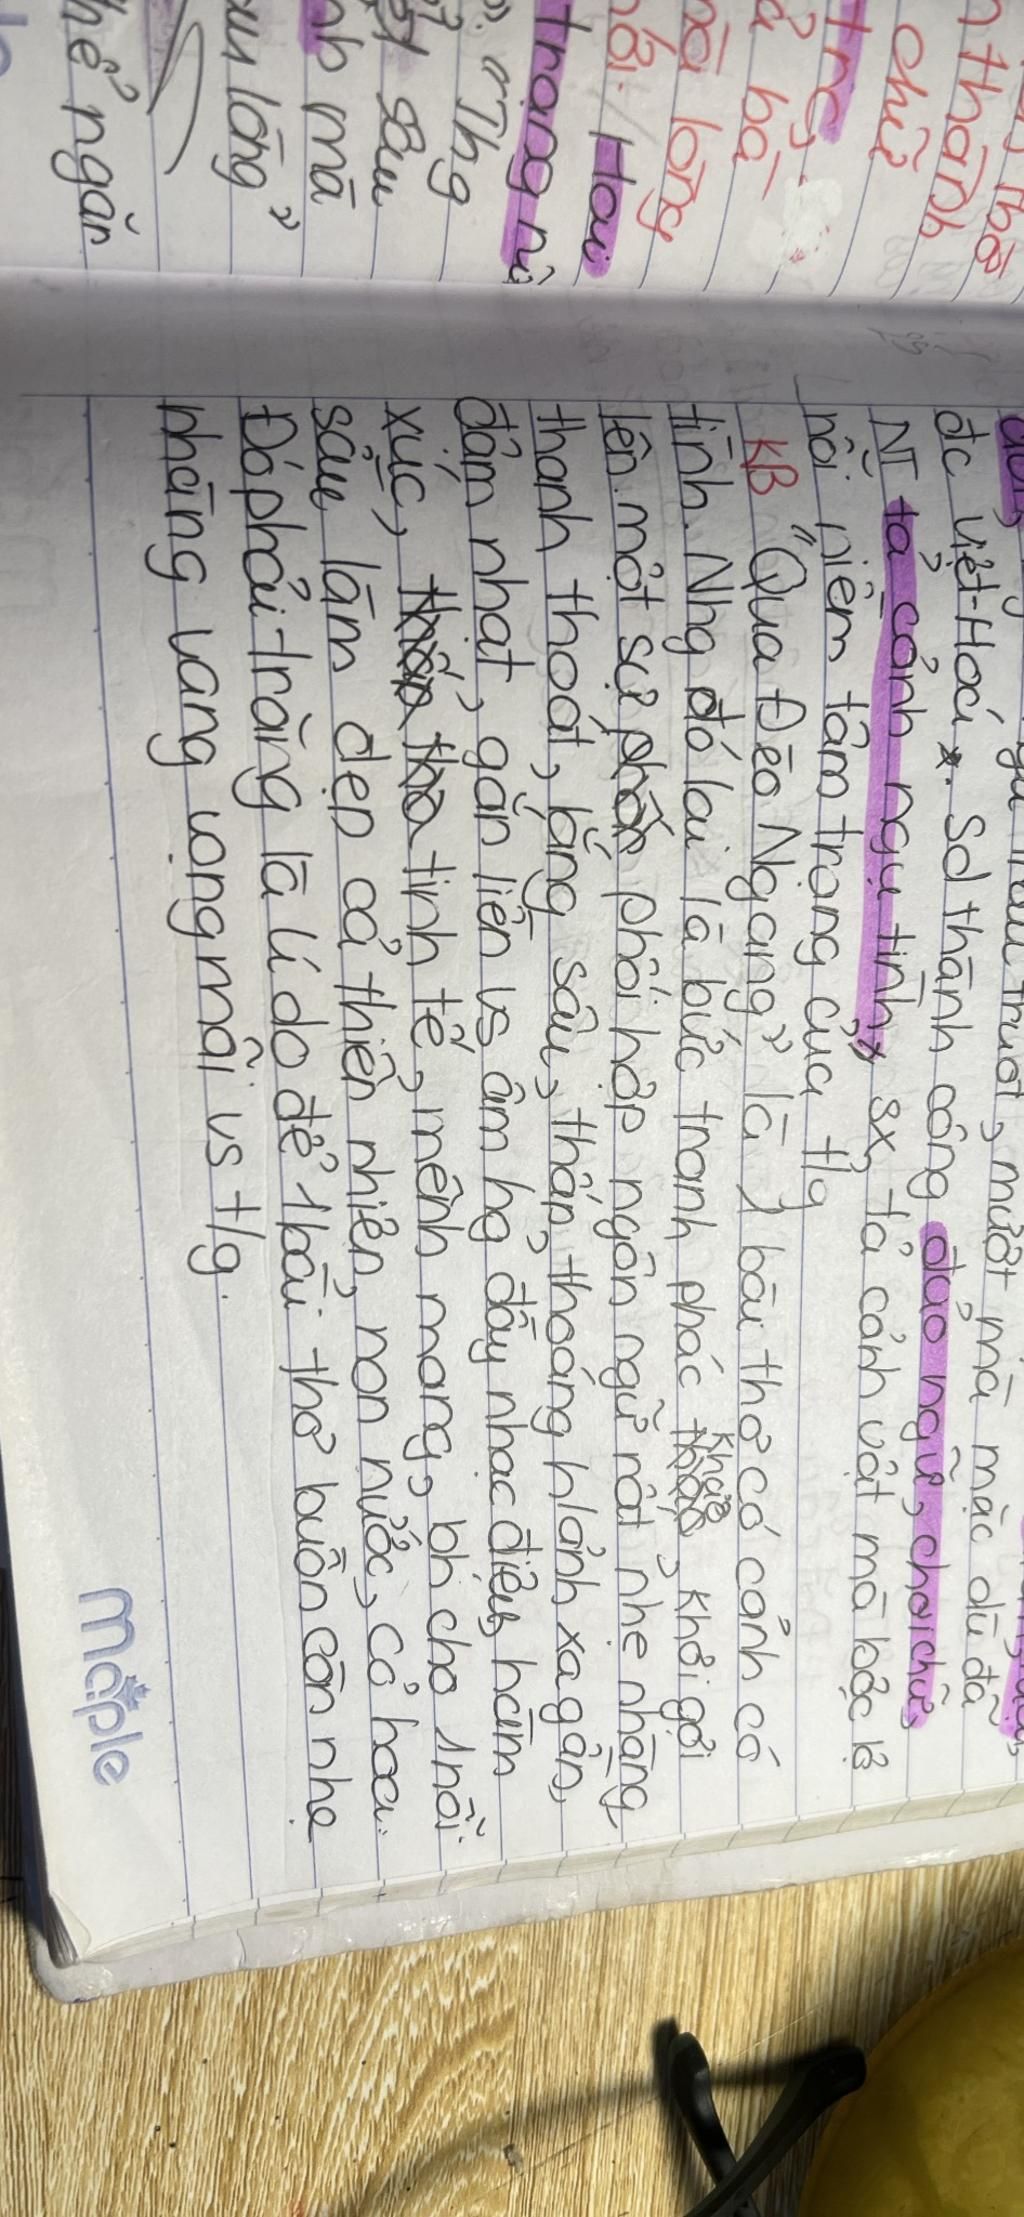 thơ
thành
chữ
trc,
bà
lòng
nổi. Hai
trạng
"Thg
sâu
mà
lòng"
ngắn
mượt mà mặc dù đã
đc việt-Hoá. Sd thành công đảo ngữ, chơi chữ,
NT tả cảnh ngụ tình, sx, tả cảnh vật mà bộc lộ
nỗi niềm tâm trạng của t/g
KB "Qua Đèo Ngang" là 1 bài thơ có cảnh có
tình. Nhg đó lại là bức tranh phác khoả, khơi gợi
lên một sự phối hợp ngôn ngữ rất nhẹ nhàng
thanh thoát, lắng sâu, thấn thoáng h/ảnh xa gần,
đậm nhạt, gắn liền vs âm hg đầy nhạc điệu, hàm
xúc, tinh tế, mênh mang, bh cho 1 nỗi
sầu làm đẹp cả thiên nhiên, non nước, cỏ hoa.
Đó phải trăng là lí do để 1 bài thơ buồn còn nhẹ
nhàng vang vọng mãi vs t/g.
maple